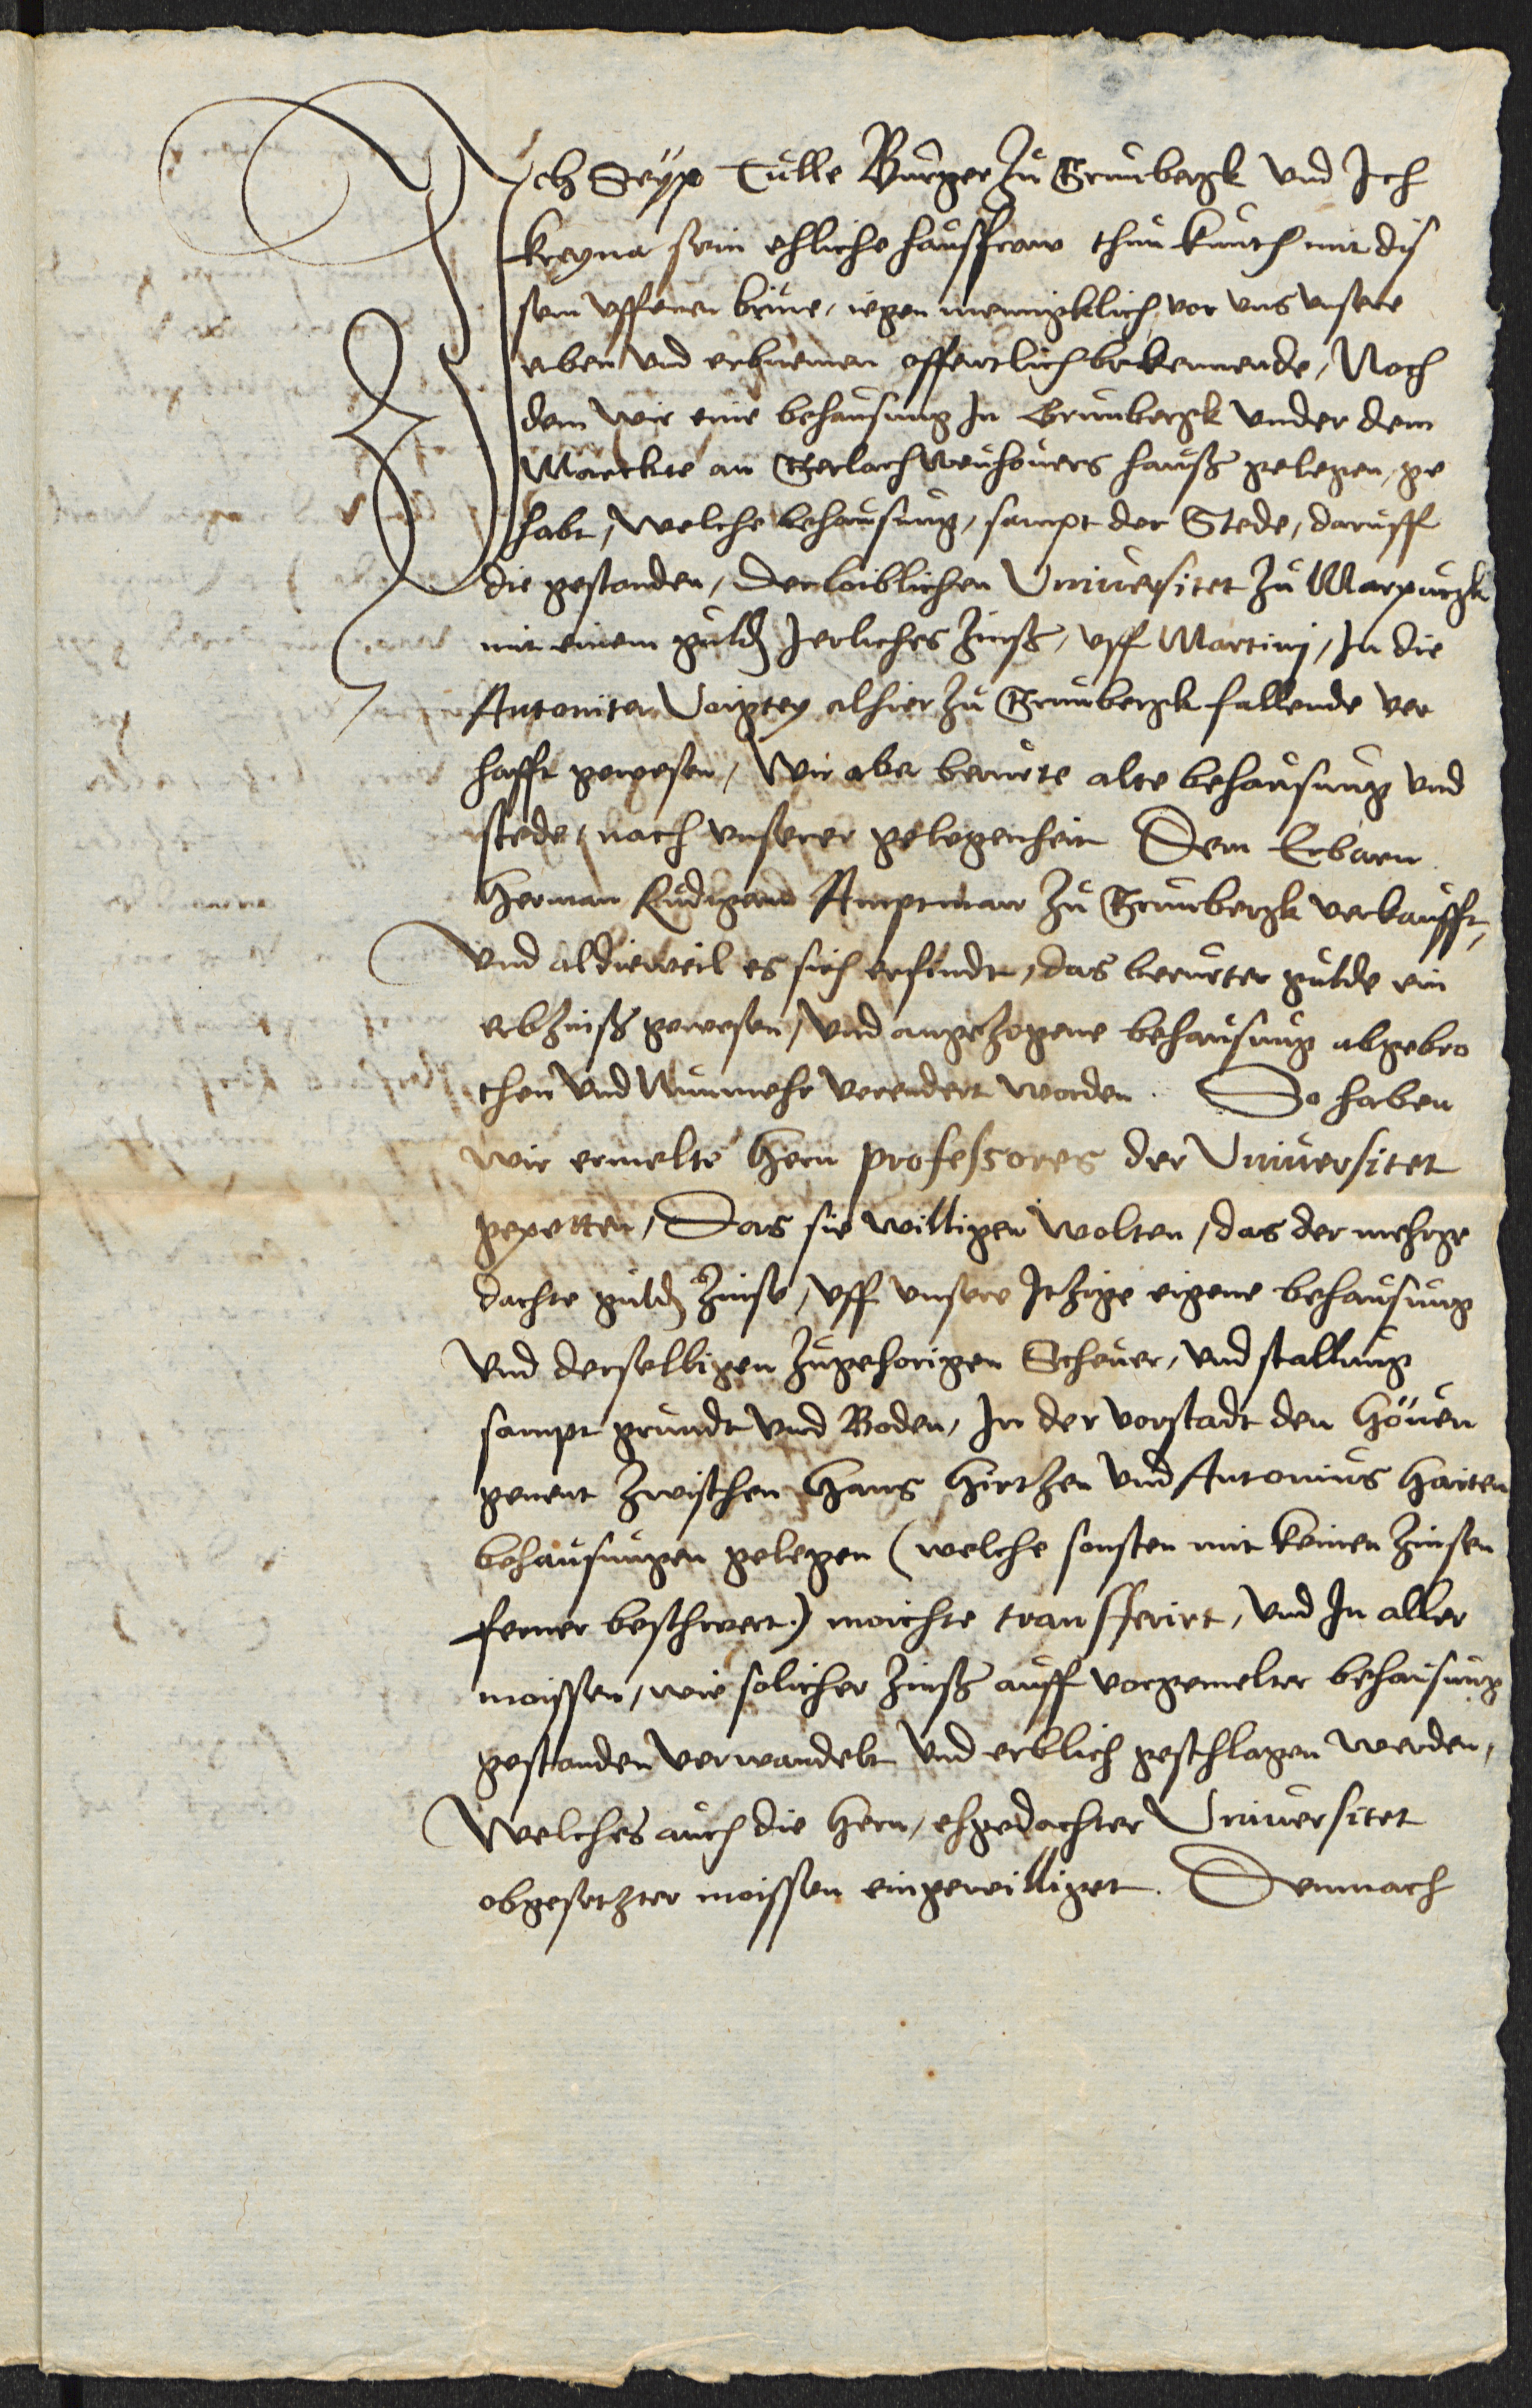 Ich Seyp Tülle Bürger zü Grünbergk vnd Ich
kreyna sein ehliche haüsffraw thün künth mit dis
sem vffenen brieue, iegen menniglich vor vns vnsere
erben vnd erbnemen offentlich bekennende, Noch
dem wir eine behaüsüng In Grünbergk vnder dem
Marckte an Gerlach Weühöuers haüß gelegen, ge
habt, welche behaüsüng, sampt der Stede, darüff
die gestanden, der loiblichen Vniüersitet zü Marpürgk
mit einem güld Jerliches Zinß, vff Martinj, In die
Antoniter Voigtey alhier zü Grünbergk fallende ver
hafft gewesen, Wir aber berürte alte behaüsüng vnd
stede, nach vnserer gelegenheit Dem Erbarn
Herman Rüdigern Amptman zü Grünbergk verkaüfft,
Vnd aldieweil es sich erfindt, das berürter gülde ein
erbzinß gewesen, vnd angezogene behaüsüng abgebro
chen vnd Nünmehr verendert worden. So haben
wir ermelte Hern professores der Vniüersitet
gepetten, Das sie willigen wolten, das der mehrge
dachte güld Zinse, vff vnsere Itzige eigene behaüsüng
vnd derselbigen zügehorigen Scheüer, vnd stallüng
sampt gründt vnd Boden, In der vorstadt den Höüen
genent zwischen Hans Hirtzen vnd Antoniüs Haiten
behaüsüngen gelegen (welche sonsten mit keinen Zinsen
ferner beschwert) moichte transfferirt, vnd In aller
moissen, wie solicher Zinß aüff vorgemelter behaüsüng
gestanden verwandelt vnd erblich geschlagen werden,
Welches aüch die Hern, ehgedachter Vniüersitet
obgesetzter moissen eingewilliget. Demnach